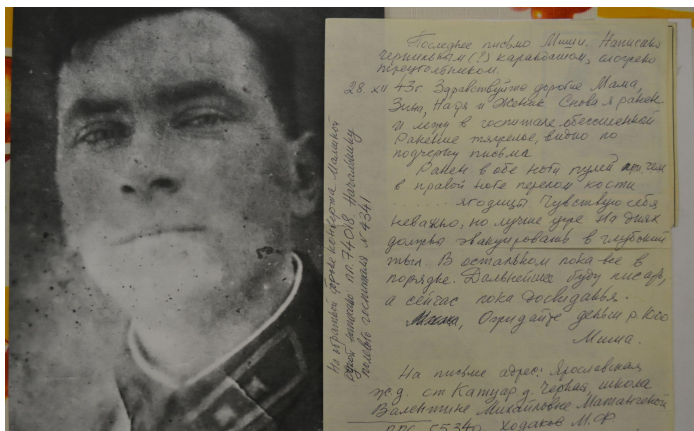 Последнее письмо Миши. Написано
чернильным (?) карандашом, сложено
треугольником.
28 XII 43 г. Здравствуйте дорогие Мама,
Зина, Надя и Женик Снова я ранен
и лежу в госпитале обессиленной
Ранение тяжелое, видно по
подчерку письма
Ранен в обе ноги пулей, при чем
в правой ноге перелом кости
....... ягодицы Чувствую себя
неважно, но лучше уже На днях
должно эвакуировать в глубокий
тыл. В остальном пока все в
порядке. Дальнейшее буду писать,
а сейчас пока до свиданья.
Мама, Ожидайте деньги р.
Миша.
На письме адрес: Ярославская
ж.д. ст Катуар д. Черная школа
Валентине Михайловне
ППС 65340 Ходаков М.Ф.
На обратной стороне конверта
п.п. 74018 Начальнику
полевого госпиталя № 4341